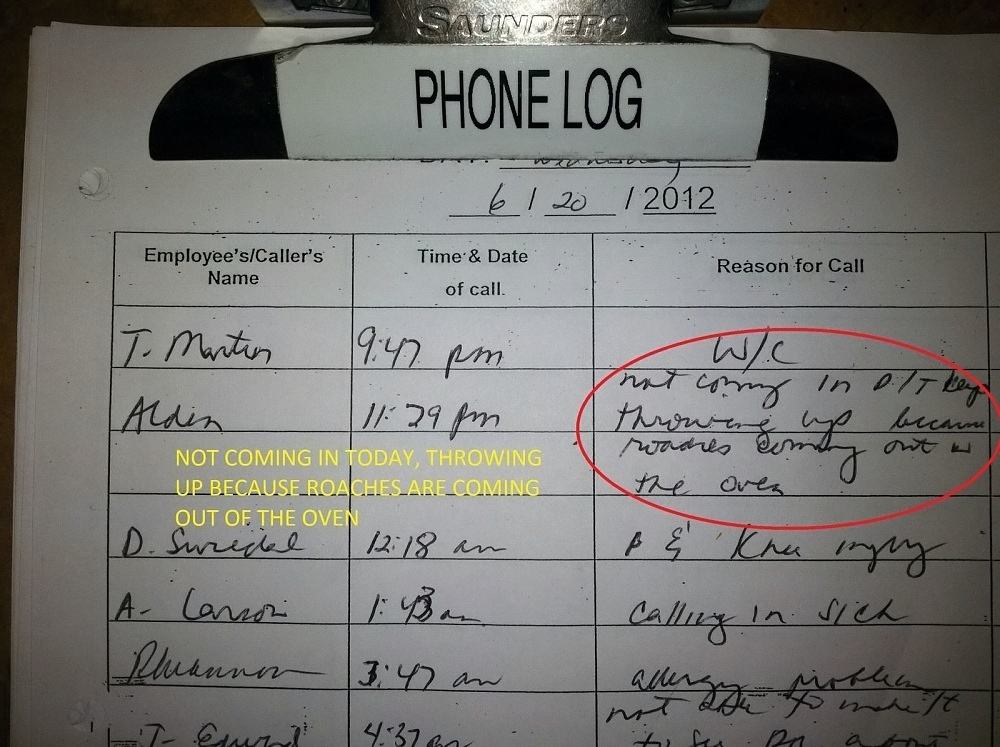 SAUNDERS
PHONE LOG
Wednesday
6 / 20 / 2012
Employee's/Caller's Name
Time & Date of call.
Reason for Call
T. Martin 9:47 pm W/C
Alden 11:29 pm not coming in
throwing up because
roaches coming out
the oven
NOT COMING IN TODAY, THROWING
UP BECAUSE ROACHES ARE COMING
OUT OF THE OVEN
D. 12:18 am Knee
A. Larson 1:43 am Calling in Sick
Rhiannon 3:47 am allergy problem
T. 4:37 am not able to make it
to